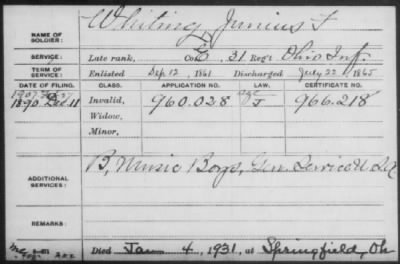 NAME OF SOLDIER: Whiting, Junius F
SERVICE: Late rank, Co. G, 31 Reg't Ohio Inf.
TERM OF SERVICE: Enlisted Sep 12, 1861 Discharged July 22, 1865
DATE OF FILING. CLASS. APPLICATION NO. LAW. CERTIFICATE NO.
1907
1890 Dec 11 Invalid, 960.028 966.218
Widow,
Minor,
ADDITIONAL SERVICES: B, Music Boys, Gen. Service U.S.
REMARKS:
Died Jan 4, 1931, at Springfield, Oh